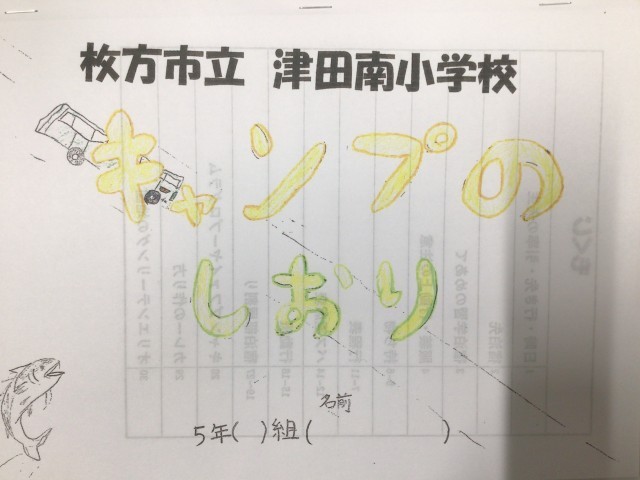 枚方市立 津田南小学校
キャンプの
しおり
名前
5年( )組( )